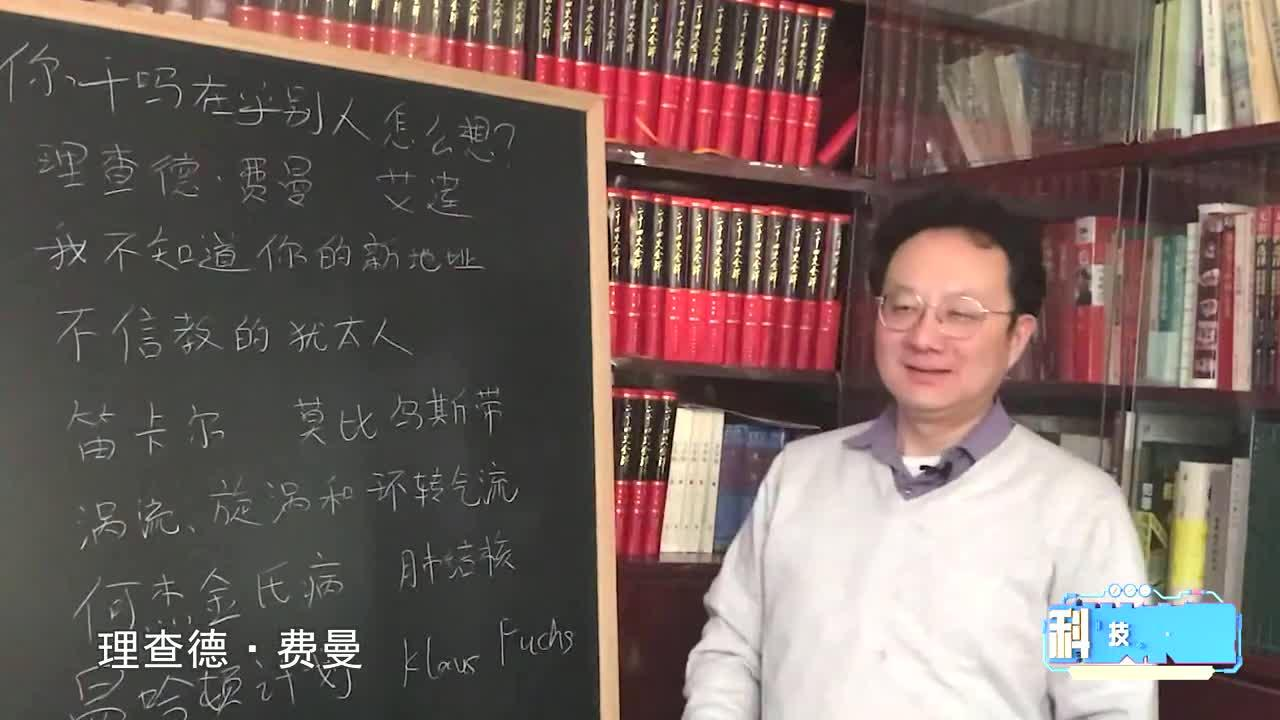 你干吗在乎别人怎么想?
理查德·费曼 艾莲
我不知道你的新地址
不信教的犹太人
笛卡尔 莫比乌斯带
涡流、旋涡和环转气流
何杰金氏病 肺结核
曼哈顿计划 Klaus Fuchs
理查德·费曼
科技·
二十四史全译